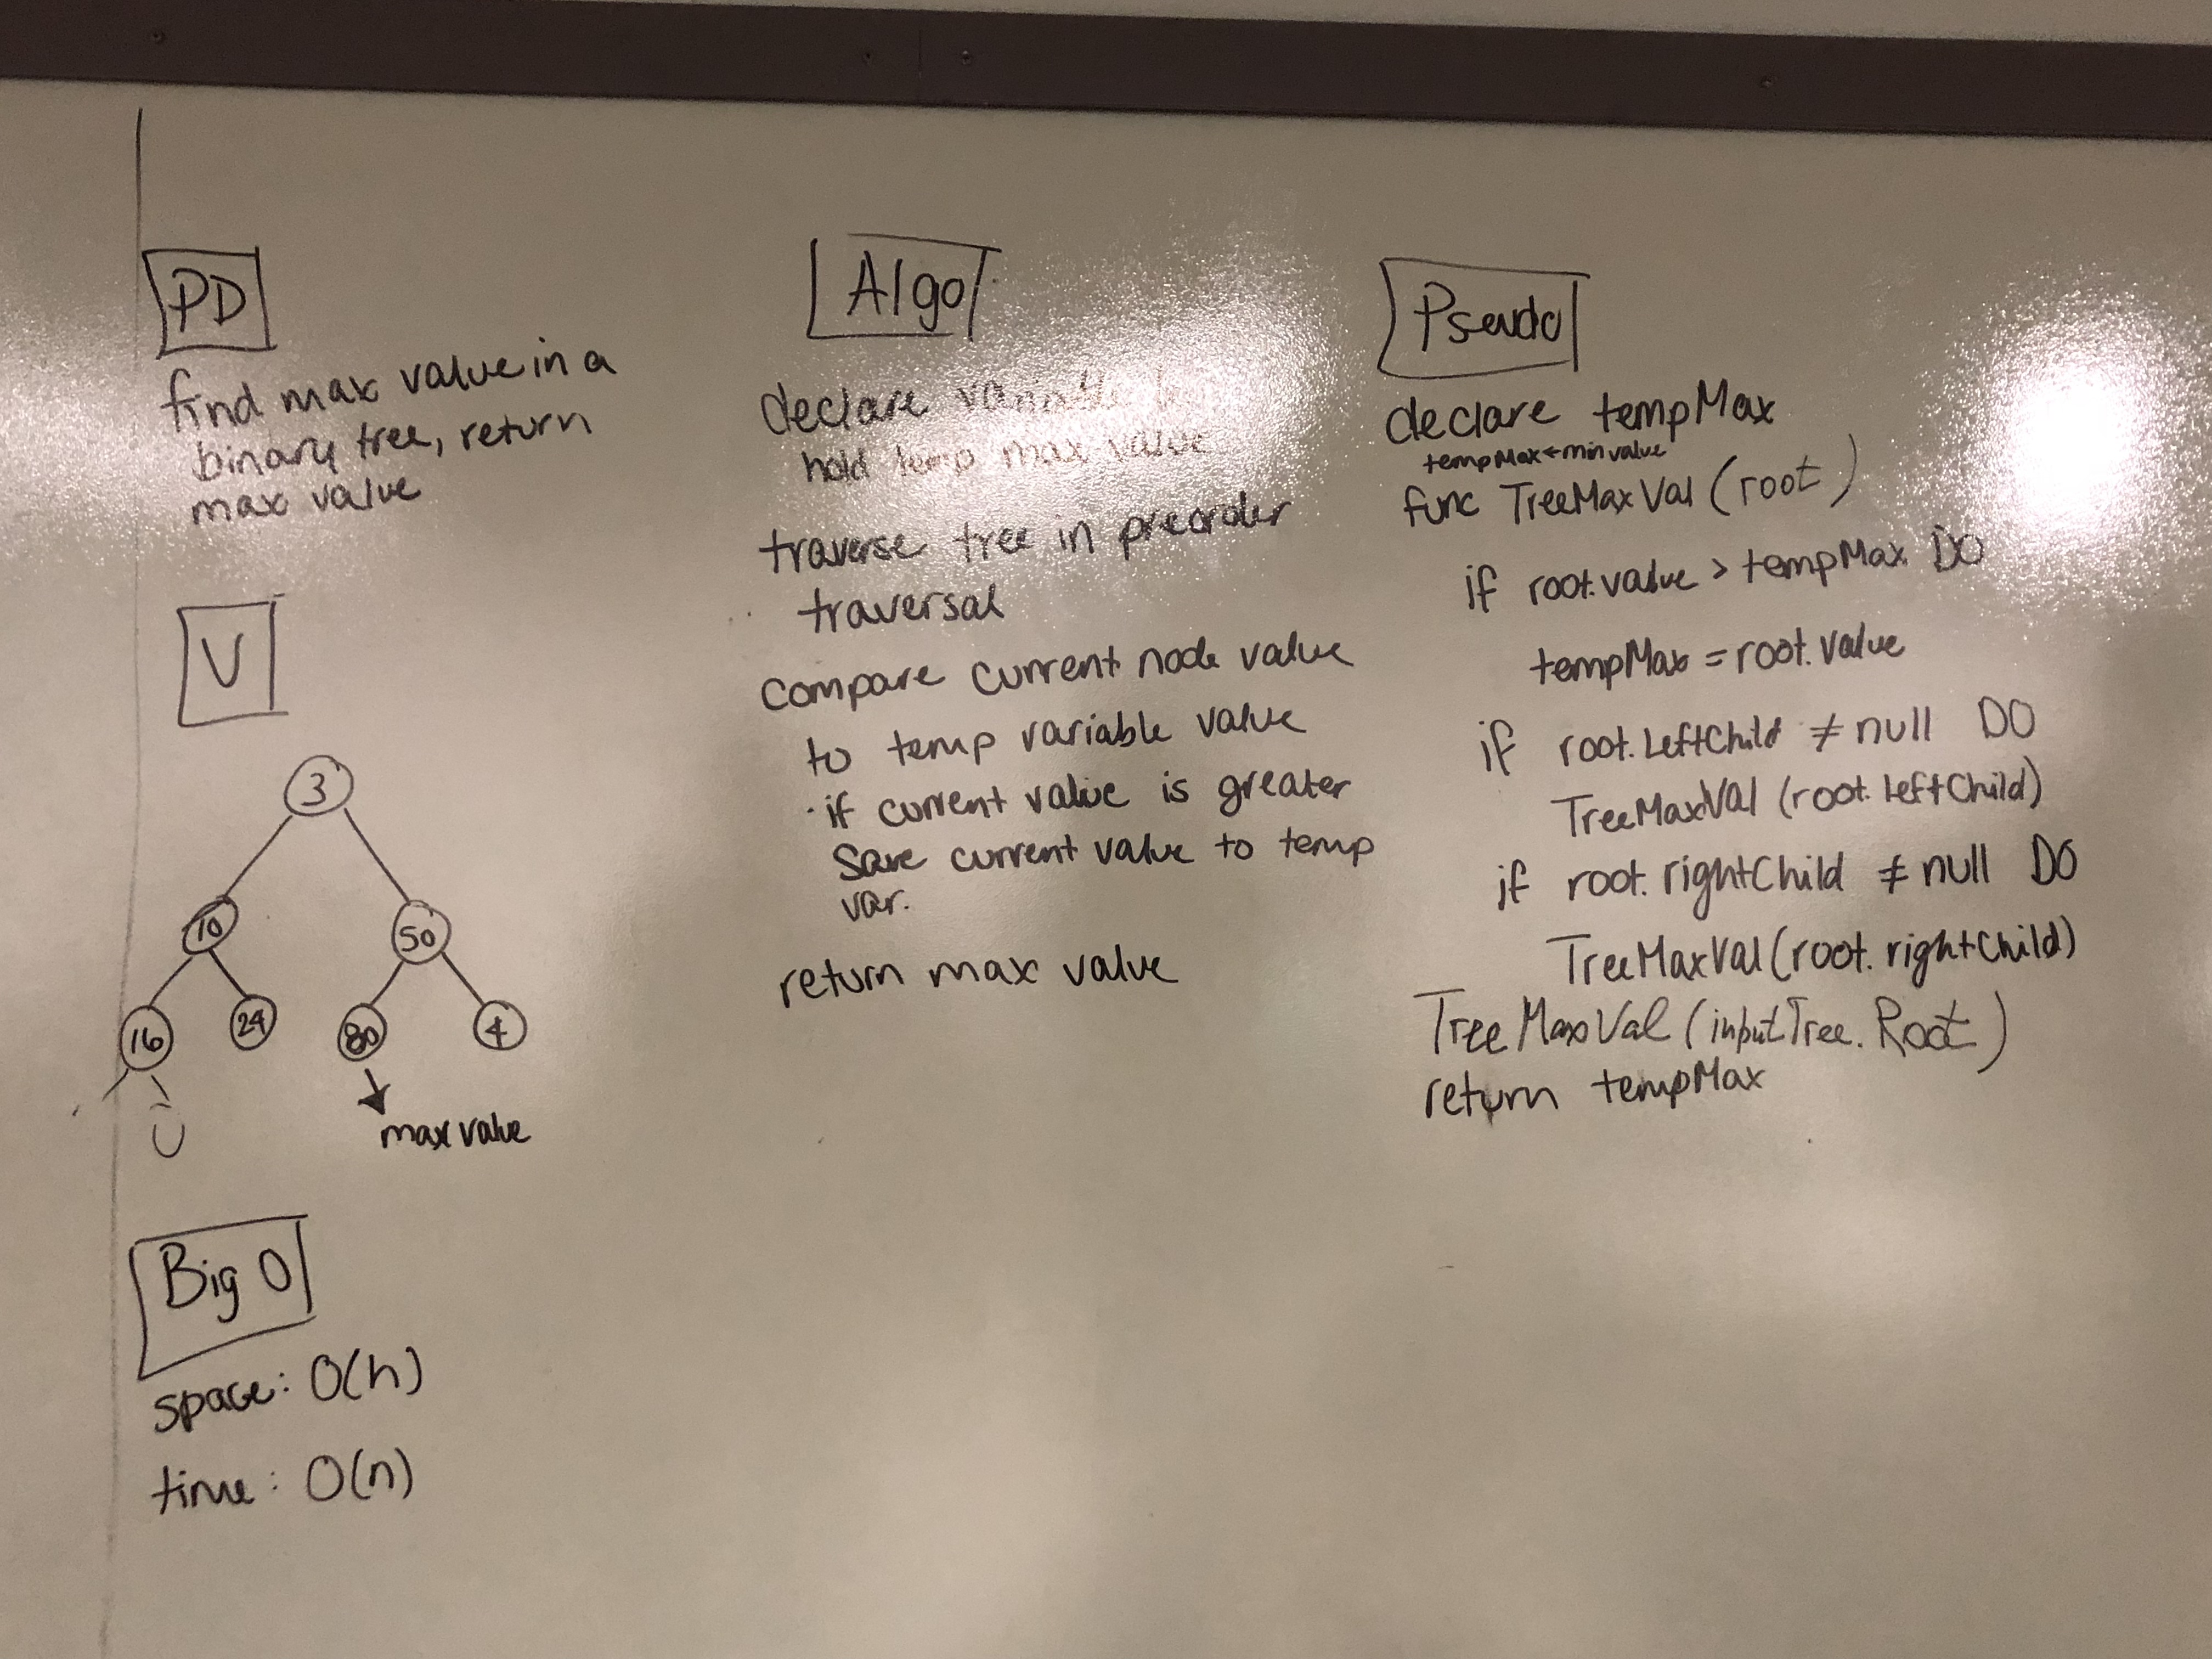 PD
find max value in a
binary tree, return
max value
V
3
10
50
16
24
80
4
max value
Big O
space: O(h)
time: O(n)
Algo
declare variable to
hold temp max value
traverse tree in preorder
traversal
compare current node value
to temp variable value
· if current value is greater
save current value to temp
var.
return max value
Pseudo
declare tempMax
tempMax ← min value
func TreeMaxVal (root)
if root.value > tempMax DO
tempMax = root.value
if root.LeftChild ≠ null DO
TreeMaxVal (root.LeftChild)
if root.rightChild ≠ null DO
TreeMaxVal (root.rightChild)
TreeMaxVal (inputTree.Root)
return tempMax